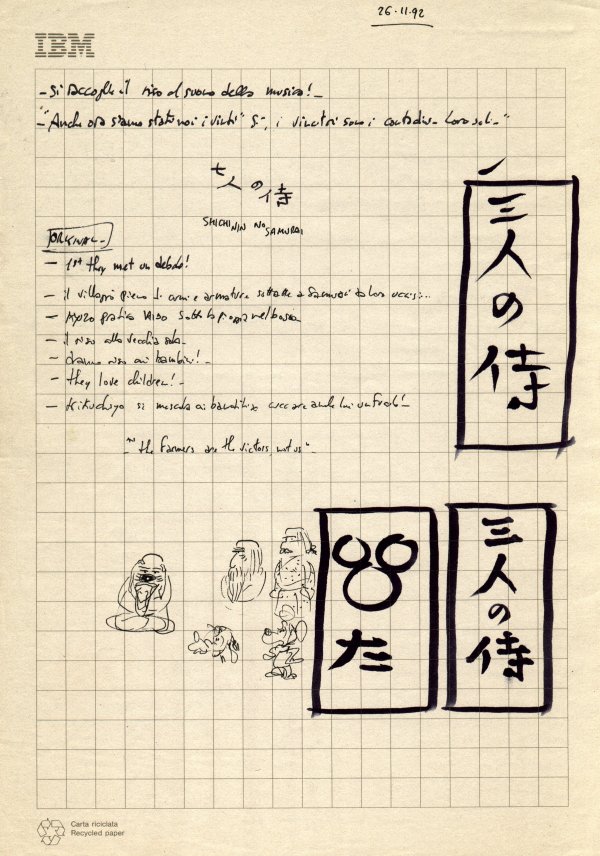 26·11·92
IBM
- Si raccoglie il riso al suono della musica! -
- "Anche ora siamo stati noi i vinti" Sì, i vincitori sono i contadini - Loro soli - "
七人の侍
SHICHININ NO SAMURAI
ORIGINAL -
- 1st they met un debole!
- il villaggio pieno di armi e armature sottratte a samurai da loro uccisi...
- Kyuzo pratica sotto la pioggia nel bosco
- il riso alla vecchia sola -
- danno riso ai bambini! -
- they love children! -
- Kikuchiyo si mescola ai banditi anche lui un fucile! -
- "the farmers are the victors, not us" -
三人の侍
た
三人の侍
Carta riciclata
Recycled paper